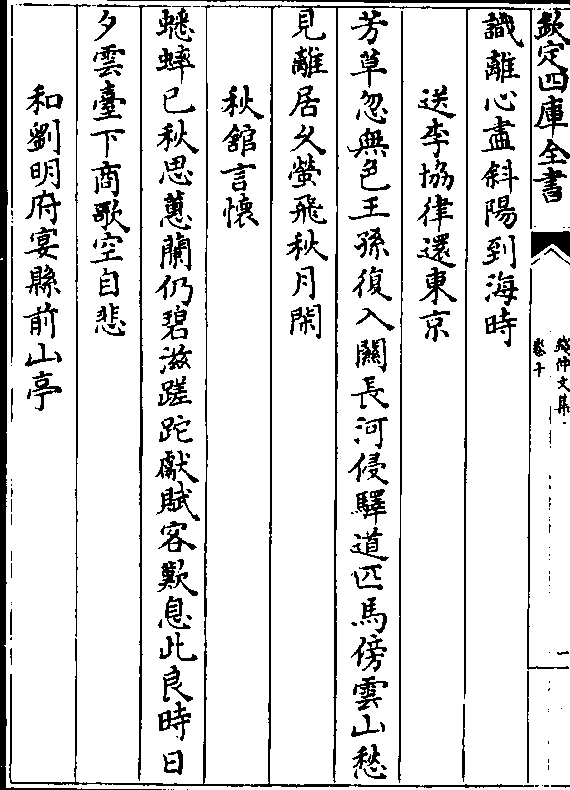 欽定四庫全書
錢仲文集
卷十
一
識離心盡斜陽到海時
送李協律還東京
芳草忽無色王孫復入關長河侵驛道匹馬傍雲山愁
見離居久螢飛秋月閑
秋館言懷
蟋蟀已秋思蕙蘭仍碧滋蹉跎獻賦客歎息此良時日
夕雲臺下商歌空自悲
和劉明府宴縣前山亭